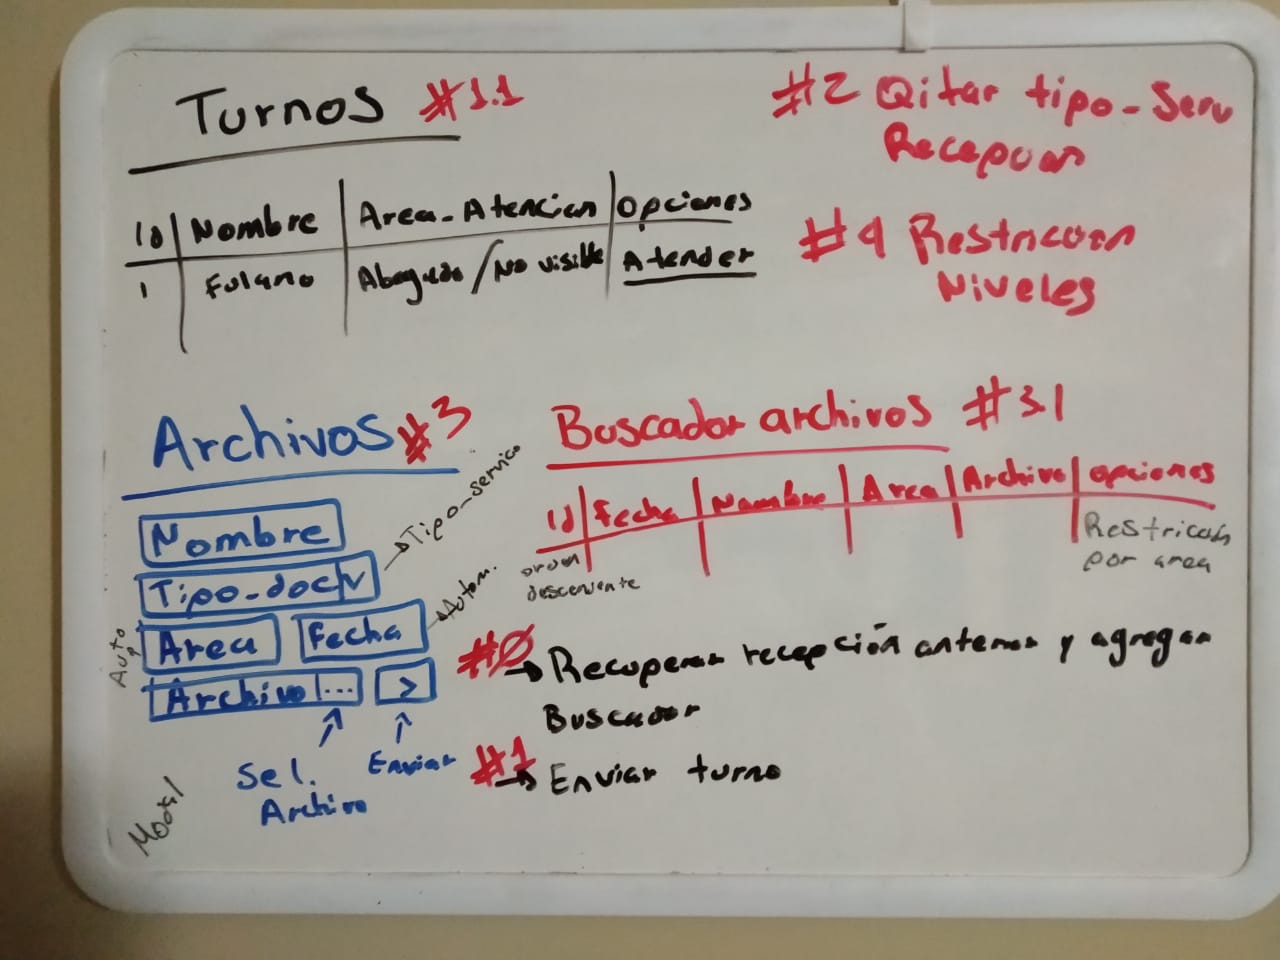 Turnos #1.1
Id | Nombre | Area-Atencion | Opciones
1 | Fulano | Abogado / No visible | Atender
#2 Qitar tipo-Serv
Recepcion
#4 Restriccion
Niveles
Archivos #3
Nombre
Tipo-doc v
→ Tipo-servico
Area Fecha
Auto
→ Autom.
Archivo ... >
Sel.
Archivo
Enviar
Modal
Buscador archivos #3.1
Id | Fecha | Nombre | Area | Archivo | opciones
orden
descendente
Restriccion
por area
#0
→ Recuperar recepción anterior y agregar
Buscador
#1
→ Enviar turno